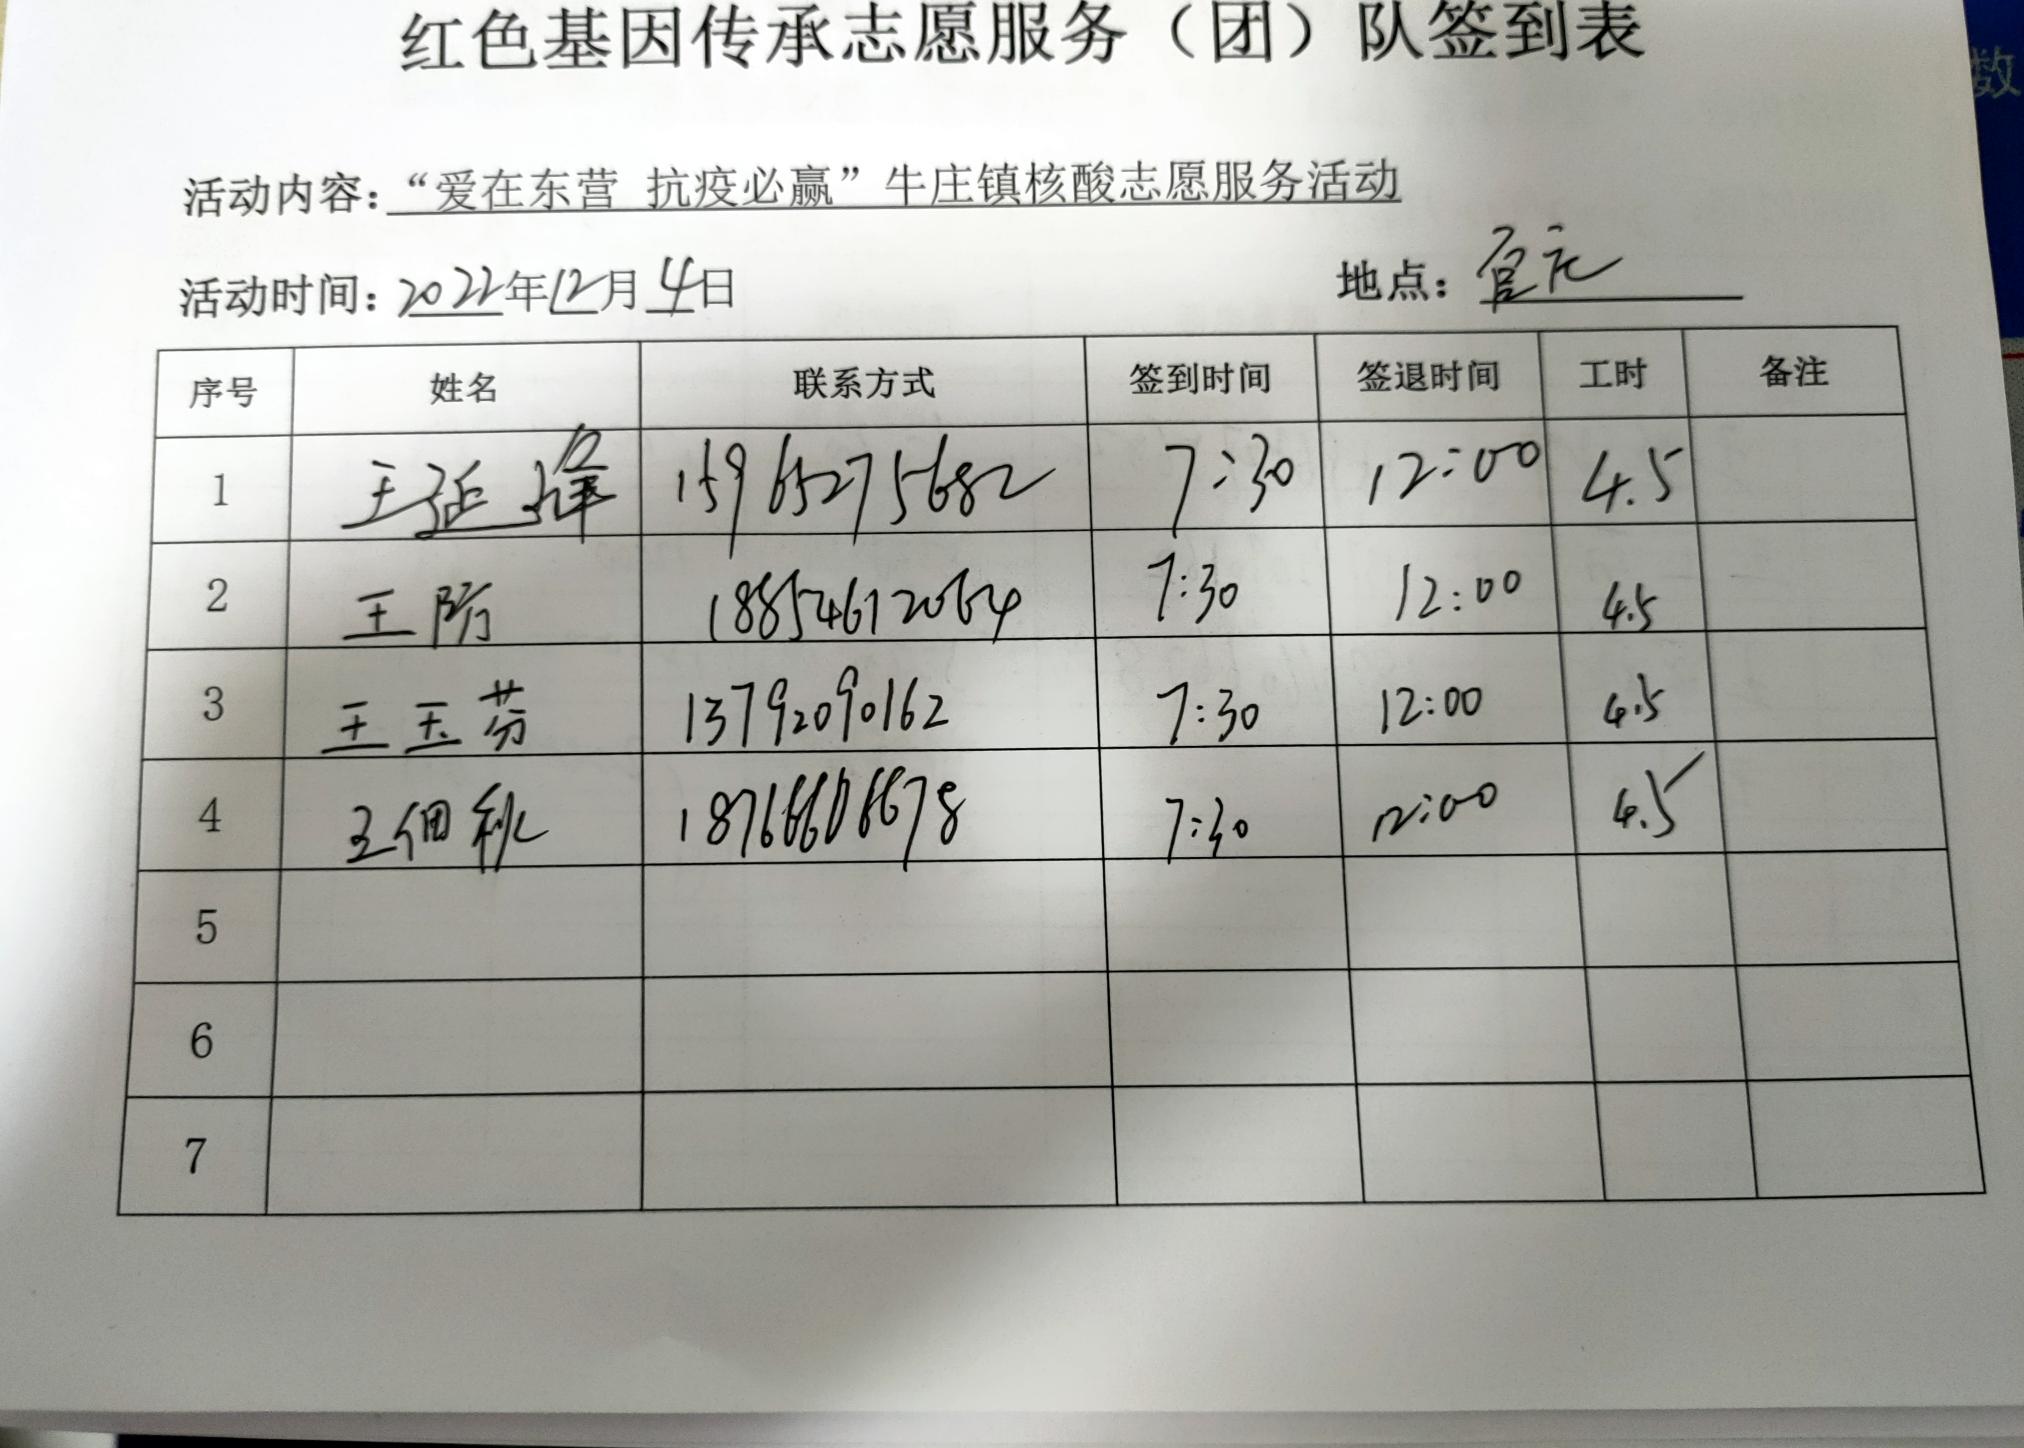 红色基因传承志愿服务（团）队签到表
数
活动内容：“爱在东营 抗疫必赢”牛庄镇核酸志愿服务活动
活动时间：2022年12月4日 地点：官元
序号 姓名 联系方式 签到时间 签退时间 工时 备注
1 王延峰 15965275682 7:30 12:00 4.5
2 王 18854612064 7:30 12:00 4.5
3 王玉芬 13792090162 7:30 12:00 4.5
4 王佃秋 18766606678 7:30 12:00 4.5
5
6
7